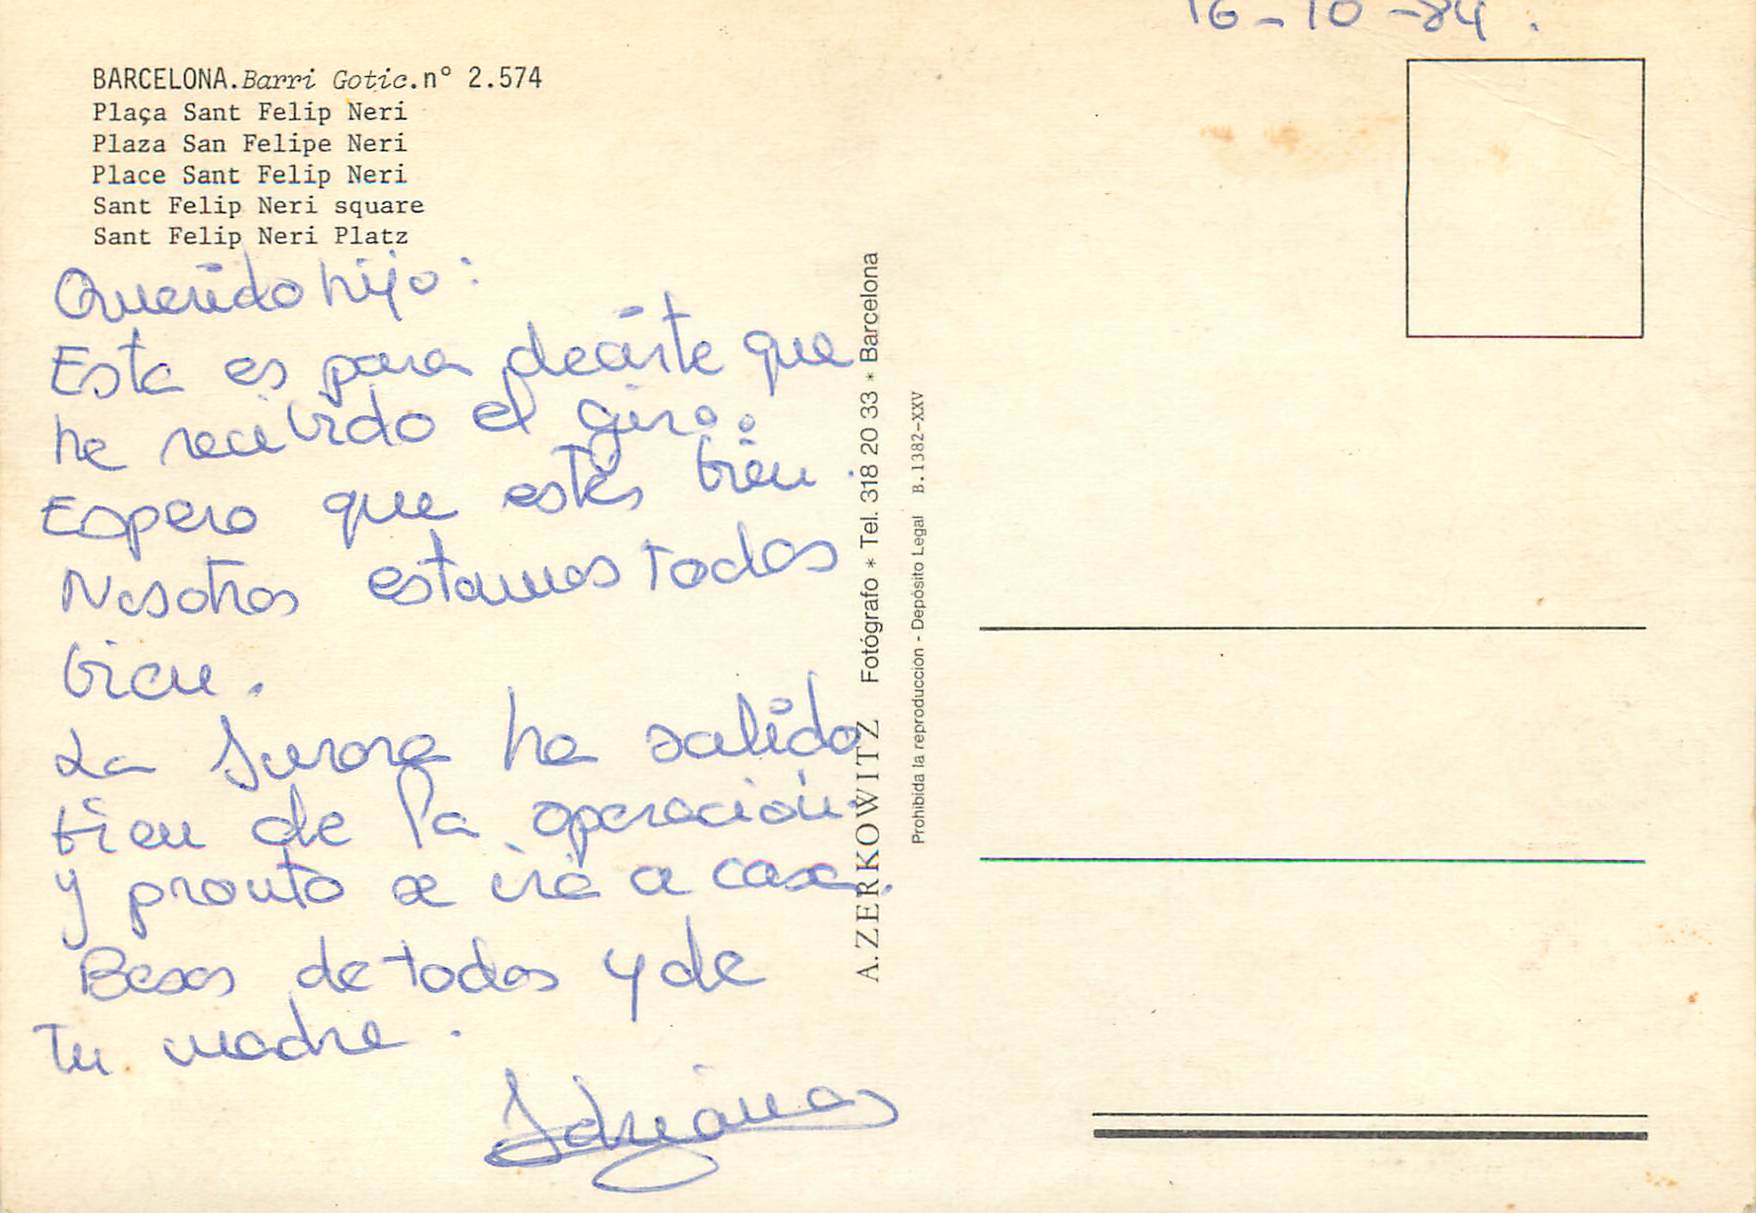 16-10-84.
BARCELONA.Barri Gotic.nº 2.574
Plaça Sant Felip Neri
Plaza San Felipe Neri
Place Sant Felip Neri
Sant Felip Neri square
Sant Felip Neri Platz
Querido hijo:
Esta es para decirte que
he recibido el giro.
Espero que estés bien.
Nosotros estamos todos
bien.
La Aurora ha salido
bien de la operación
y pronto se irá a casa.
Besos de todos y de
tu madre.
A. ZERKOWITZ Fotógrafo * Tel. 318 20 33 * Barcelona
Prohibida la reproducción - Depósito Legal B. 1382-XXV